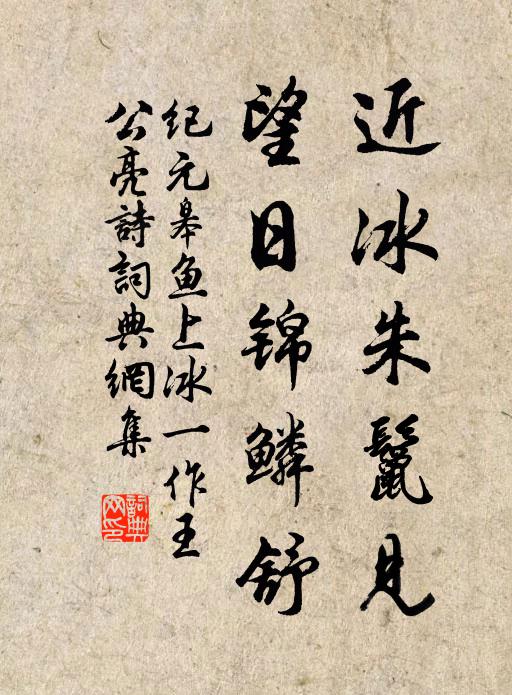 近冰朱鬣見
望日锦鳞舒
纪元皋鱼上冰一作王
公亮詩詞典網集
詞典
网印